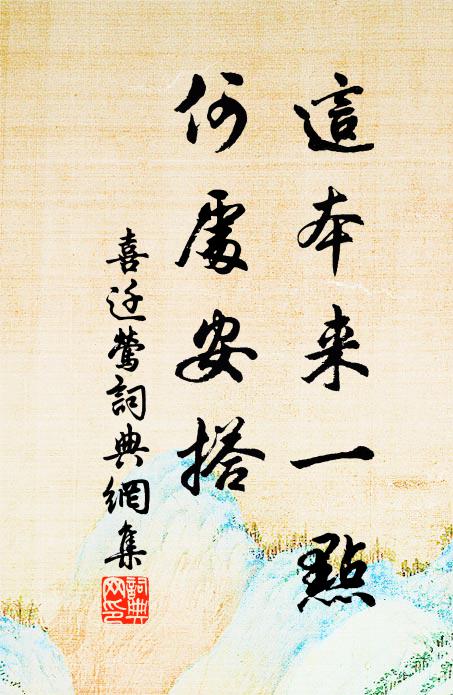 這本来一點
何處安搭
喜迁鶯詞典網集
詞典网印